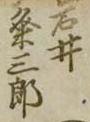 石井
粂三郎